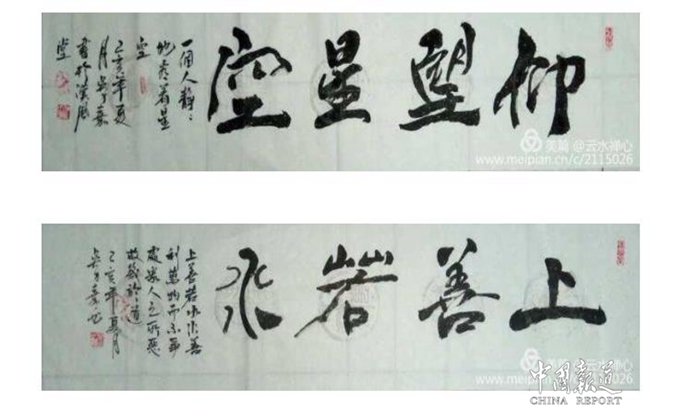 仰望星空
一個人靜〻
地看着星
空
己亥年夏
月吴
書於漢
堂
美篇 @云水禅心
www.meipian.cn/c/2115026
上善若水
上善若水水善
利萬物而不爭
處眾人之所惡
故幾於道
己亥年夏月
吴
www.meipian.cn/c/2115026
中国报道
CHINA REPORT